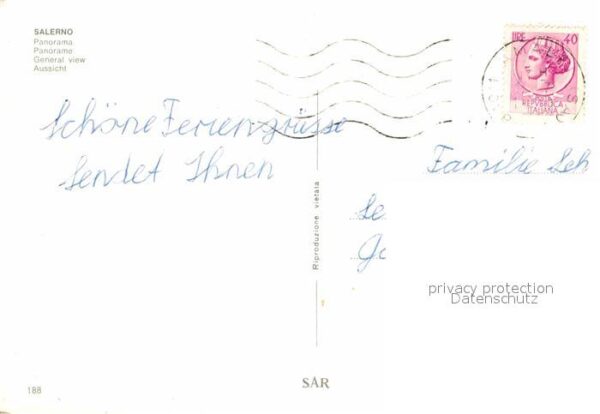 SALERNO
Panorama
Panorame
General view
Aussicht
LIRE 40
REPVBBLICA
ITALIANA
Schöne Feriengrüsse
sendet Ihnen
Familie Sch
Se
Ja
Riproduzione vietata
privacy protection
Datenschutz
188
SAR